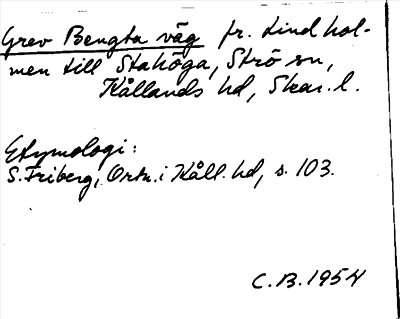 Grev Bengta väg fr. Lindhol-
men till Stahöga, Strö sn,
Kållands hd, Skar. l.
Etymologi:
S. Friberg, Ortn. i Kåll. hd, s. 103.
C.B. 1954